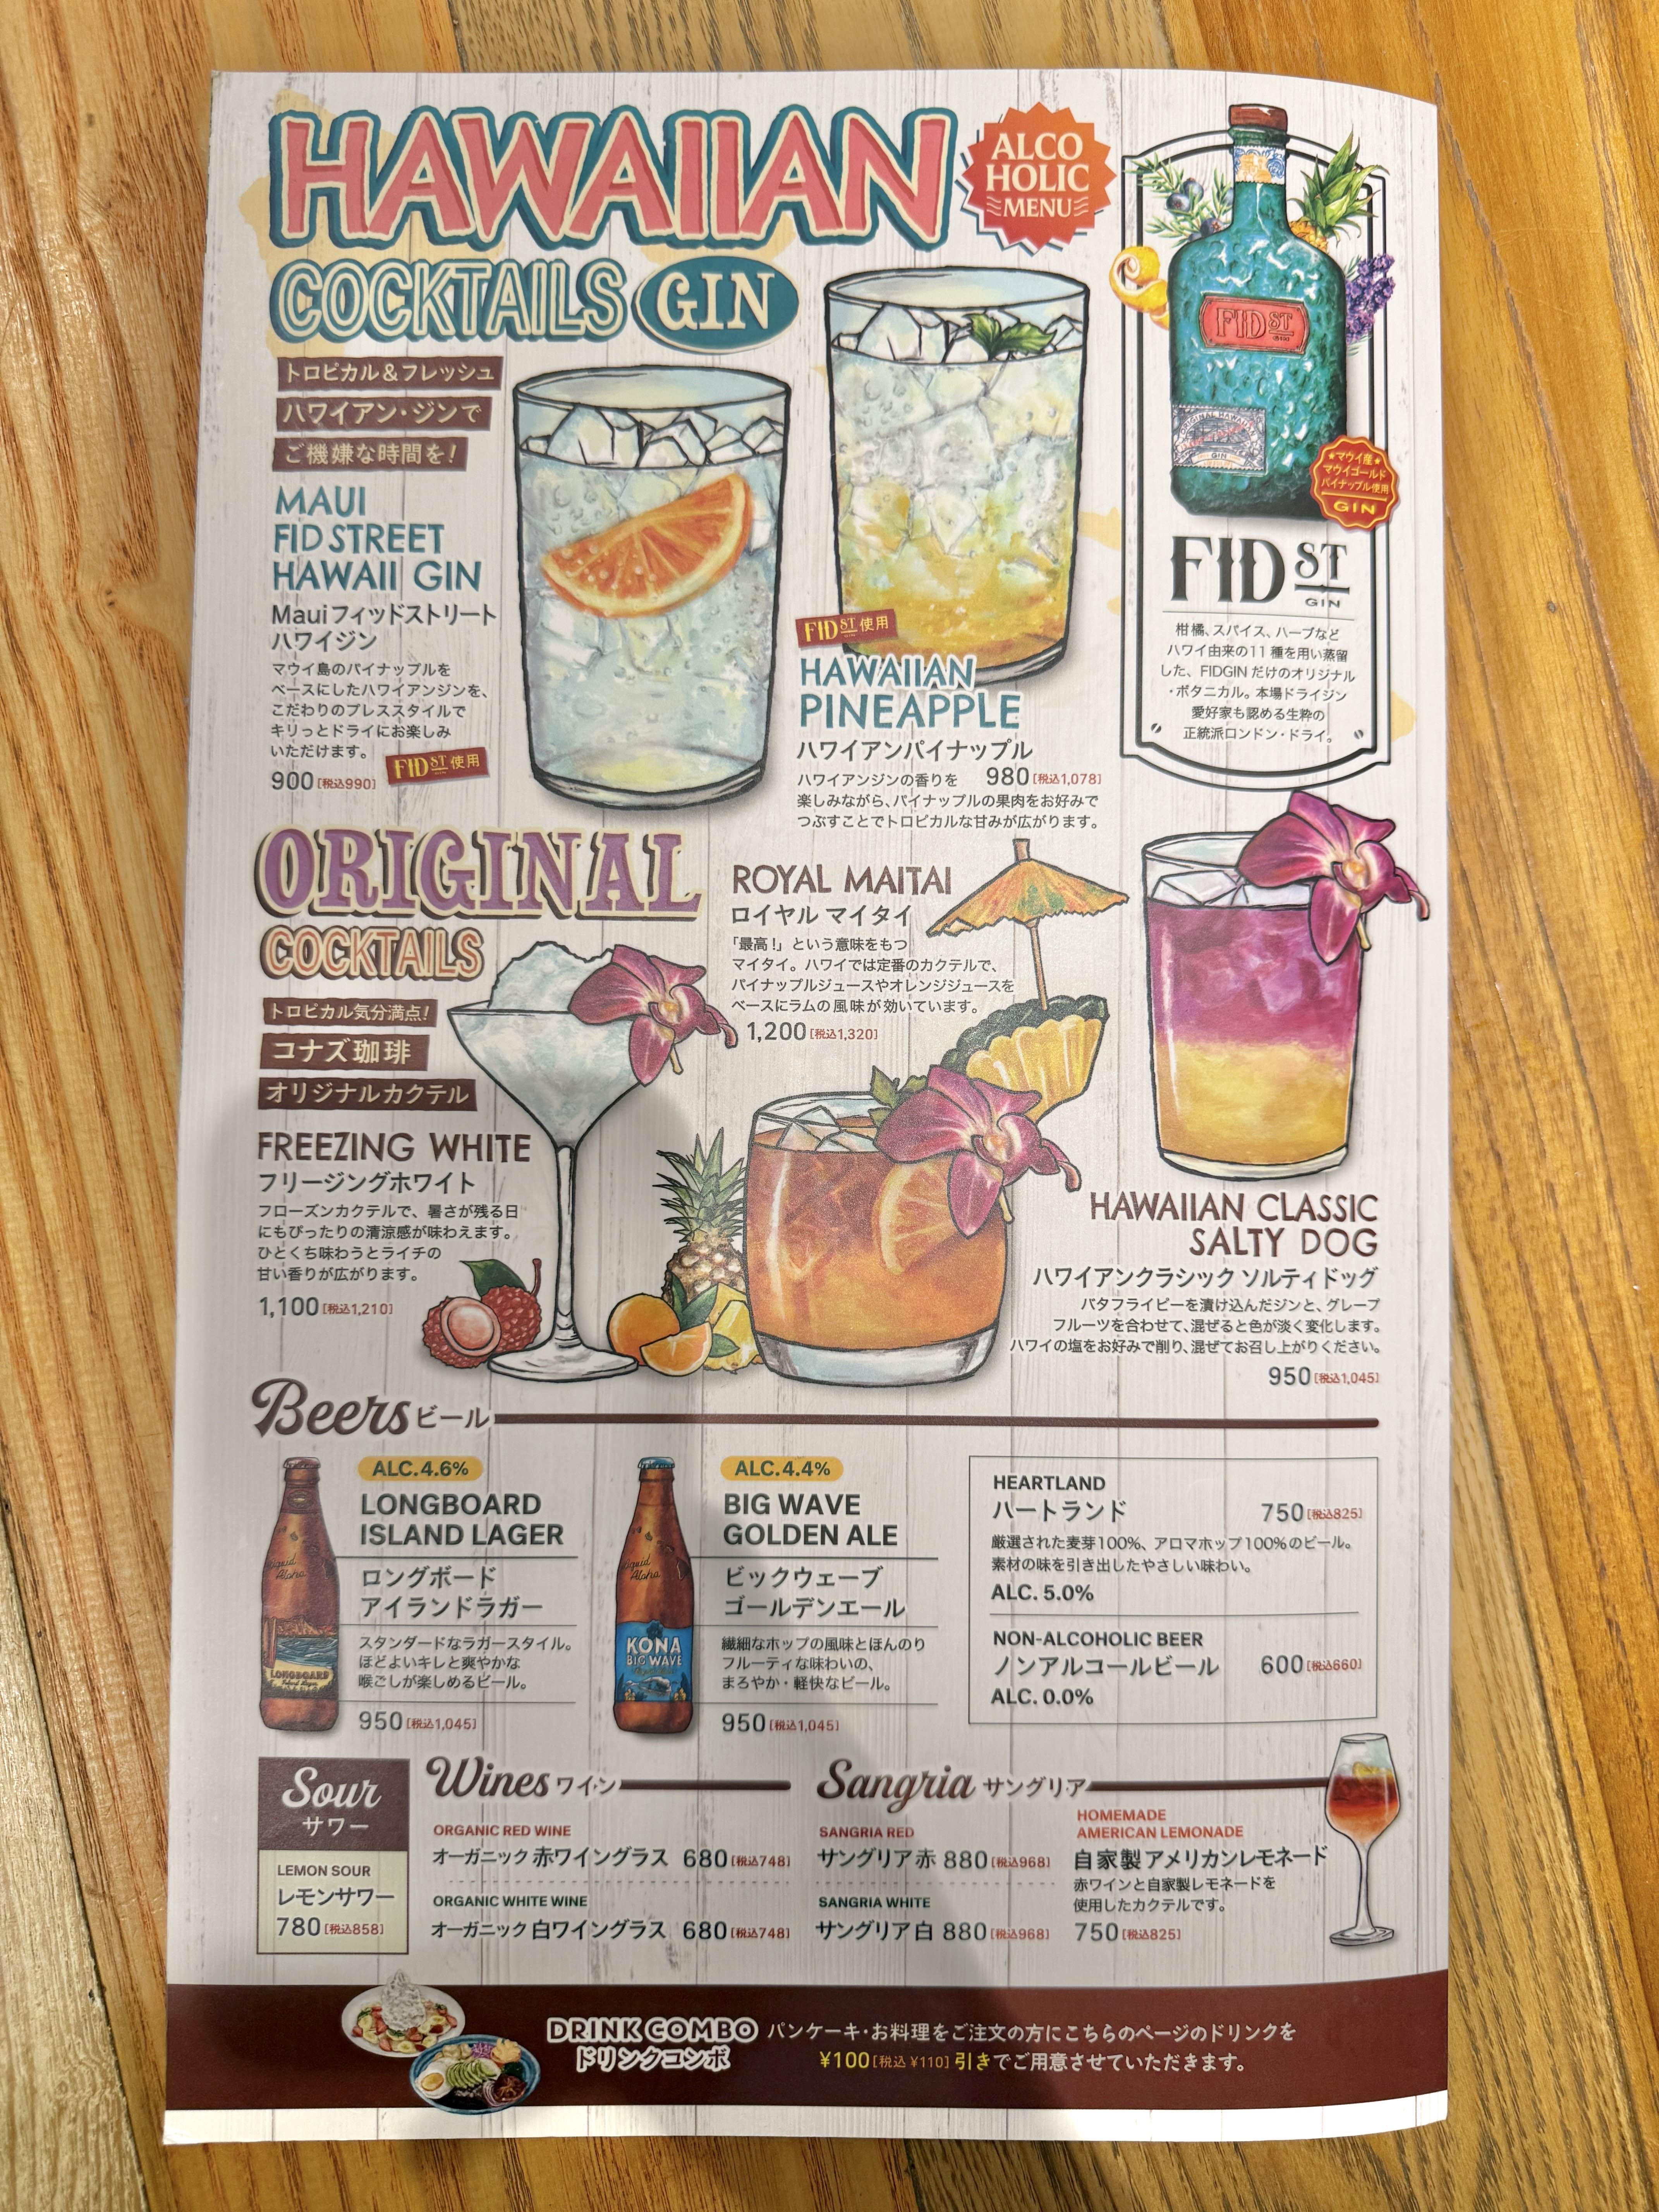 HAWAIIAN
COCKTAILS GIN
ALCO
HOLIC
MENU
トロピカル＆フレッシュ
ハワイアン・ジンで
ご機嫌な時間を！
MAUI
FID STREET
HAWAII GIN
Mauiフィッドストリート
ハワイジン
マウイ島のパイナップルを
ベースにしたハワイアンジンを、
こだわりのプレススタイルで
キリっとドライにお楽しみ
いただけます。
900［税込990］
FID ST 使用
FID ST 使用
HAWAIIAN
PINEAPPLE
ハワイアンパイナップル
ハワイアンジンの香りを 980［税込1,078］
楽しみながら、パイナップルの果肉をお好みで
つぶすことでトロピカルな甘みが広がります。
FID ST
GIN
★マウイ産★
マウイゴールド
パイナップル使用
GIN
FID ST
GIN
柑橘、スパイス、ハーブなど
ハワイ由来の11種を用い蒸留
した、FIDGINだけのオリジナル
・ボタニカル。本場ドライジン
愛好家も認める生粋の
正統派ロンドン・ドライ。
ORIGINAL
COCKTAILS
トロピカル気分満点！
コナズ珈琲
オリジナルカクテル
FREEZING WHITE
フリージングホワイト
フローズンカクテルで、暑さが残る日
にもぴったりの清涼感が味わえます。
ひとくち味わうとライチの
甘い香りが広がります。
1,100［税込1,210］
ROYAL MAITAI
ロイヤル マイタイ
「最高！」という意味をもつ
マイタイ。ハワイでは定番のカクテルで、
パイナップルジュースやオレンジジュースを
ベースにラムの風味が効いています。
1,200［税込1,320］
HAWAIIAN CLASSIC
SALTY DOG
ハワイアンクラシック ソルティドッグ
バタフライピーを漬け込んだジンと、グレープ
フルーツを合わせて、混ぜると色が淡く変化します。
ハワイの塩をお好みで削り、混ぜてお召し上がりください。
950［税込1,045］
Beers ビール
ALC.4.6%
LONGBOARD
ISLAND LAGER
ロングボード
アイランドラガー
スタンダードなラガースタイル。
ほどよいキレと爽やかな
喉ごしが楽しめるビール。
950［税込1,045］
Liquid
Aloha
LONGBOARD
Island Lager
ALC.4.4%
BIG WAVE
GOLDEN ALE
ビックウェーブ
ゴールデンエール
繊細なホップの風味とほんのり
フルーティな味わいの、
まろやか・軽快なビール。
950［税込1,045］
Liquid
Aloha
KONA
BIG WAVE
HEARTLAND
ハートランド 750［税込825］
厳選された麦芽100%、アロマホップ100%のビール。
素材の味を引き出したやさしい味わい。
ALC. 5.0%
NON-ALCOHOLIC BEER
ノンアルコールビール 600［税込660］
ALC. 0.0%
Sour
サワー
LEMON SOUR
レモンサワー
780［税込858］
Wines ワイン
ORGANIC RED WINE
オーガニック 赤ワイングラス 680［税込748］
ORGANIC WHITE WINE
オーガニック 白ワイングラス 680［税込748］
Sangria サングリア
SANGRIA RED
サングリア 赤 880［税込968］
SANGRIA WHITE
サングリア 白 880［税込968］
HOMEMADE
AMERICAN LEMONADE
自家製 アメリカンレモネード
赤ワインと自家製レモネードを
使用したカクテルです。
750［税込825］
DRINK COMBO
ドリンクコンボ
パンケーキ・お料理をご注文の方にこちらのページのドリンクを
¥100［税込 ¥110］引きでご用意させていただきます。